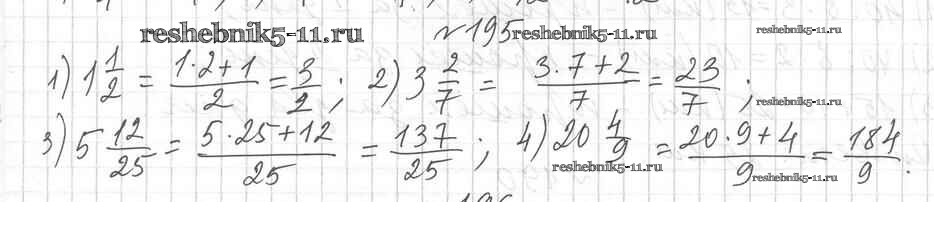 reshebnik5-11.ru №195 reshebnik5-11.ru reshebnik5-11.ru
1) 1 1/2 = (1·2+1)/2 = 3/2 ; 2) 3 2/7 = (3·7+2)/7 = 23/7 ; reshebnik5-11.ru
3) 5 12/25 = (5·25+12)/25 = 137/25 ; 4) 20 4/9 = (20·9+4)/9 = 184/9 .
reshebnik5-11.ru reshebnik5-11.ru